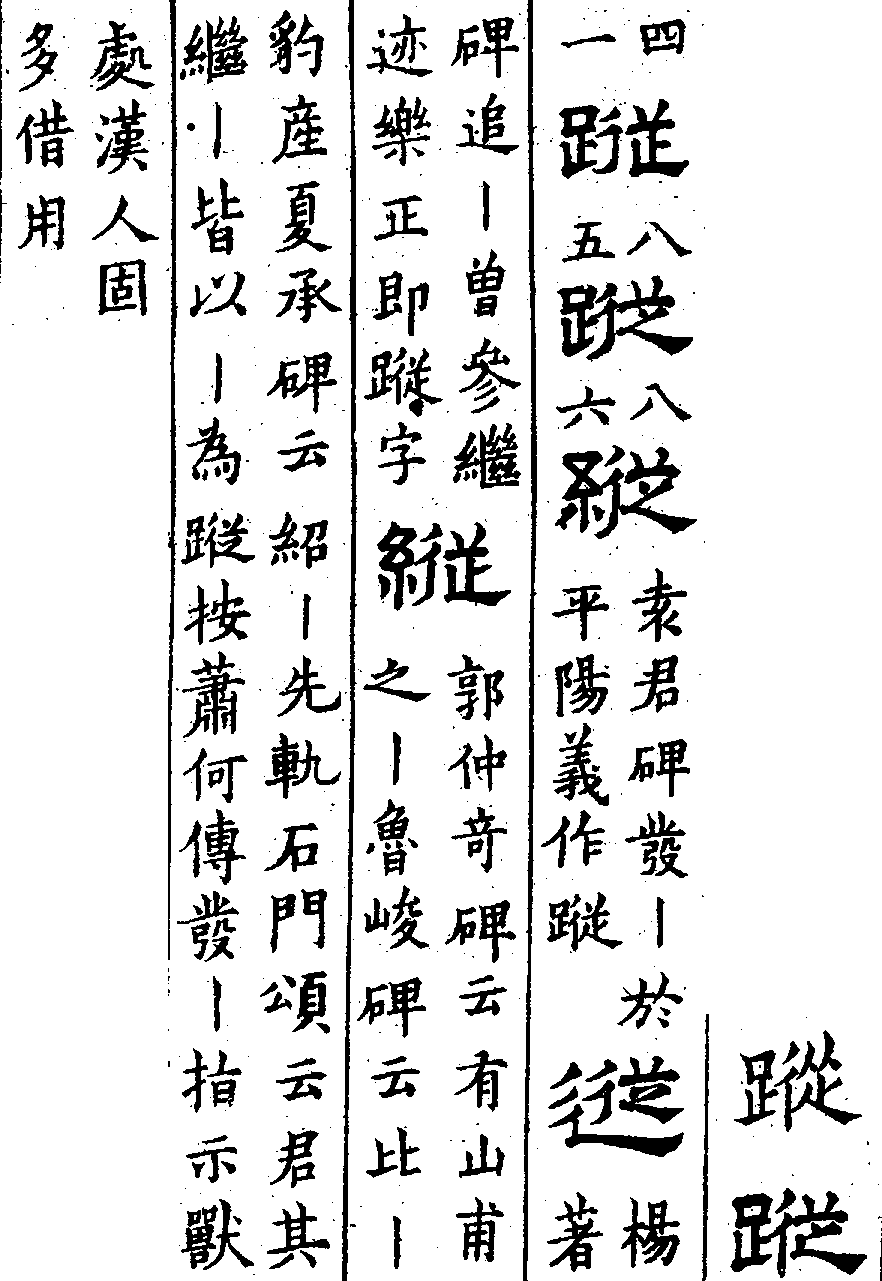 蹤
蹤
四
一
蹤
八
五
蹤
八
六
縱
袁君碑發丨於
平陽義作蹤
楊
著
碑追丨曾參繼
迹樂正即蹤字
縱
郭仲奇碑云有山甫
之丨魯峻碑云比丨
豹產夏承碑云紹丨先軌石門頌云君其
繼丨皆以丨為蹤按蕭何傳發丨指示獸
處漢人固
多借用